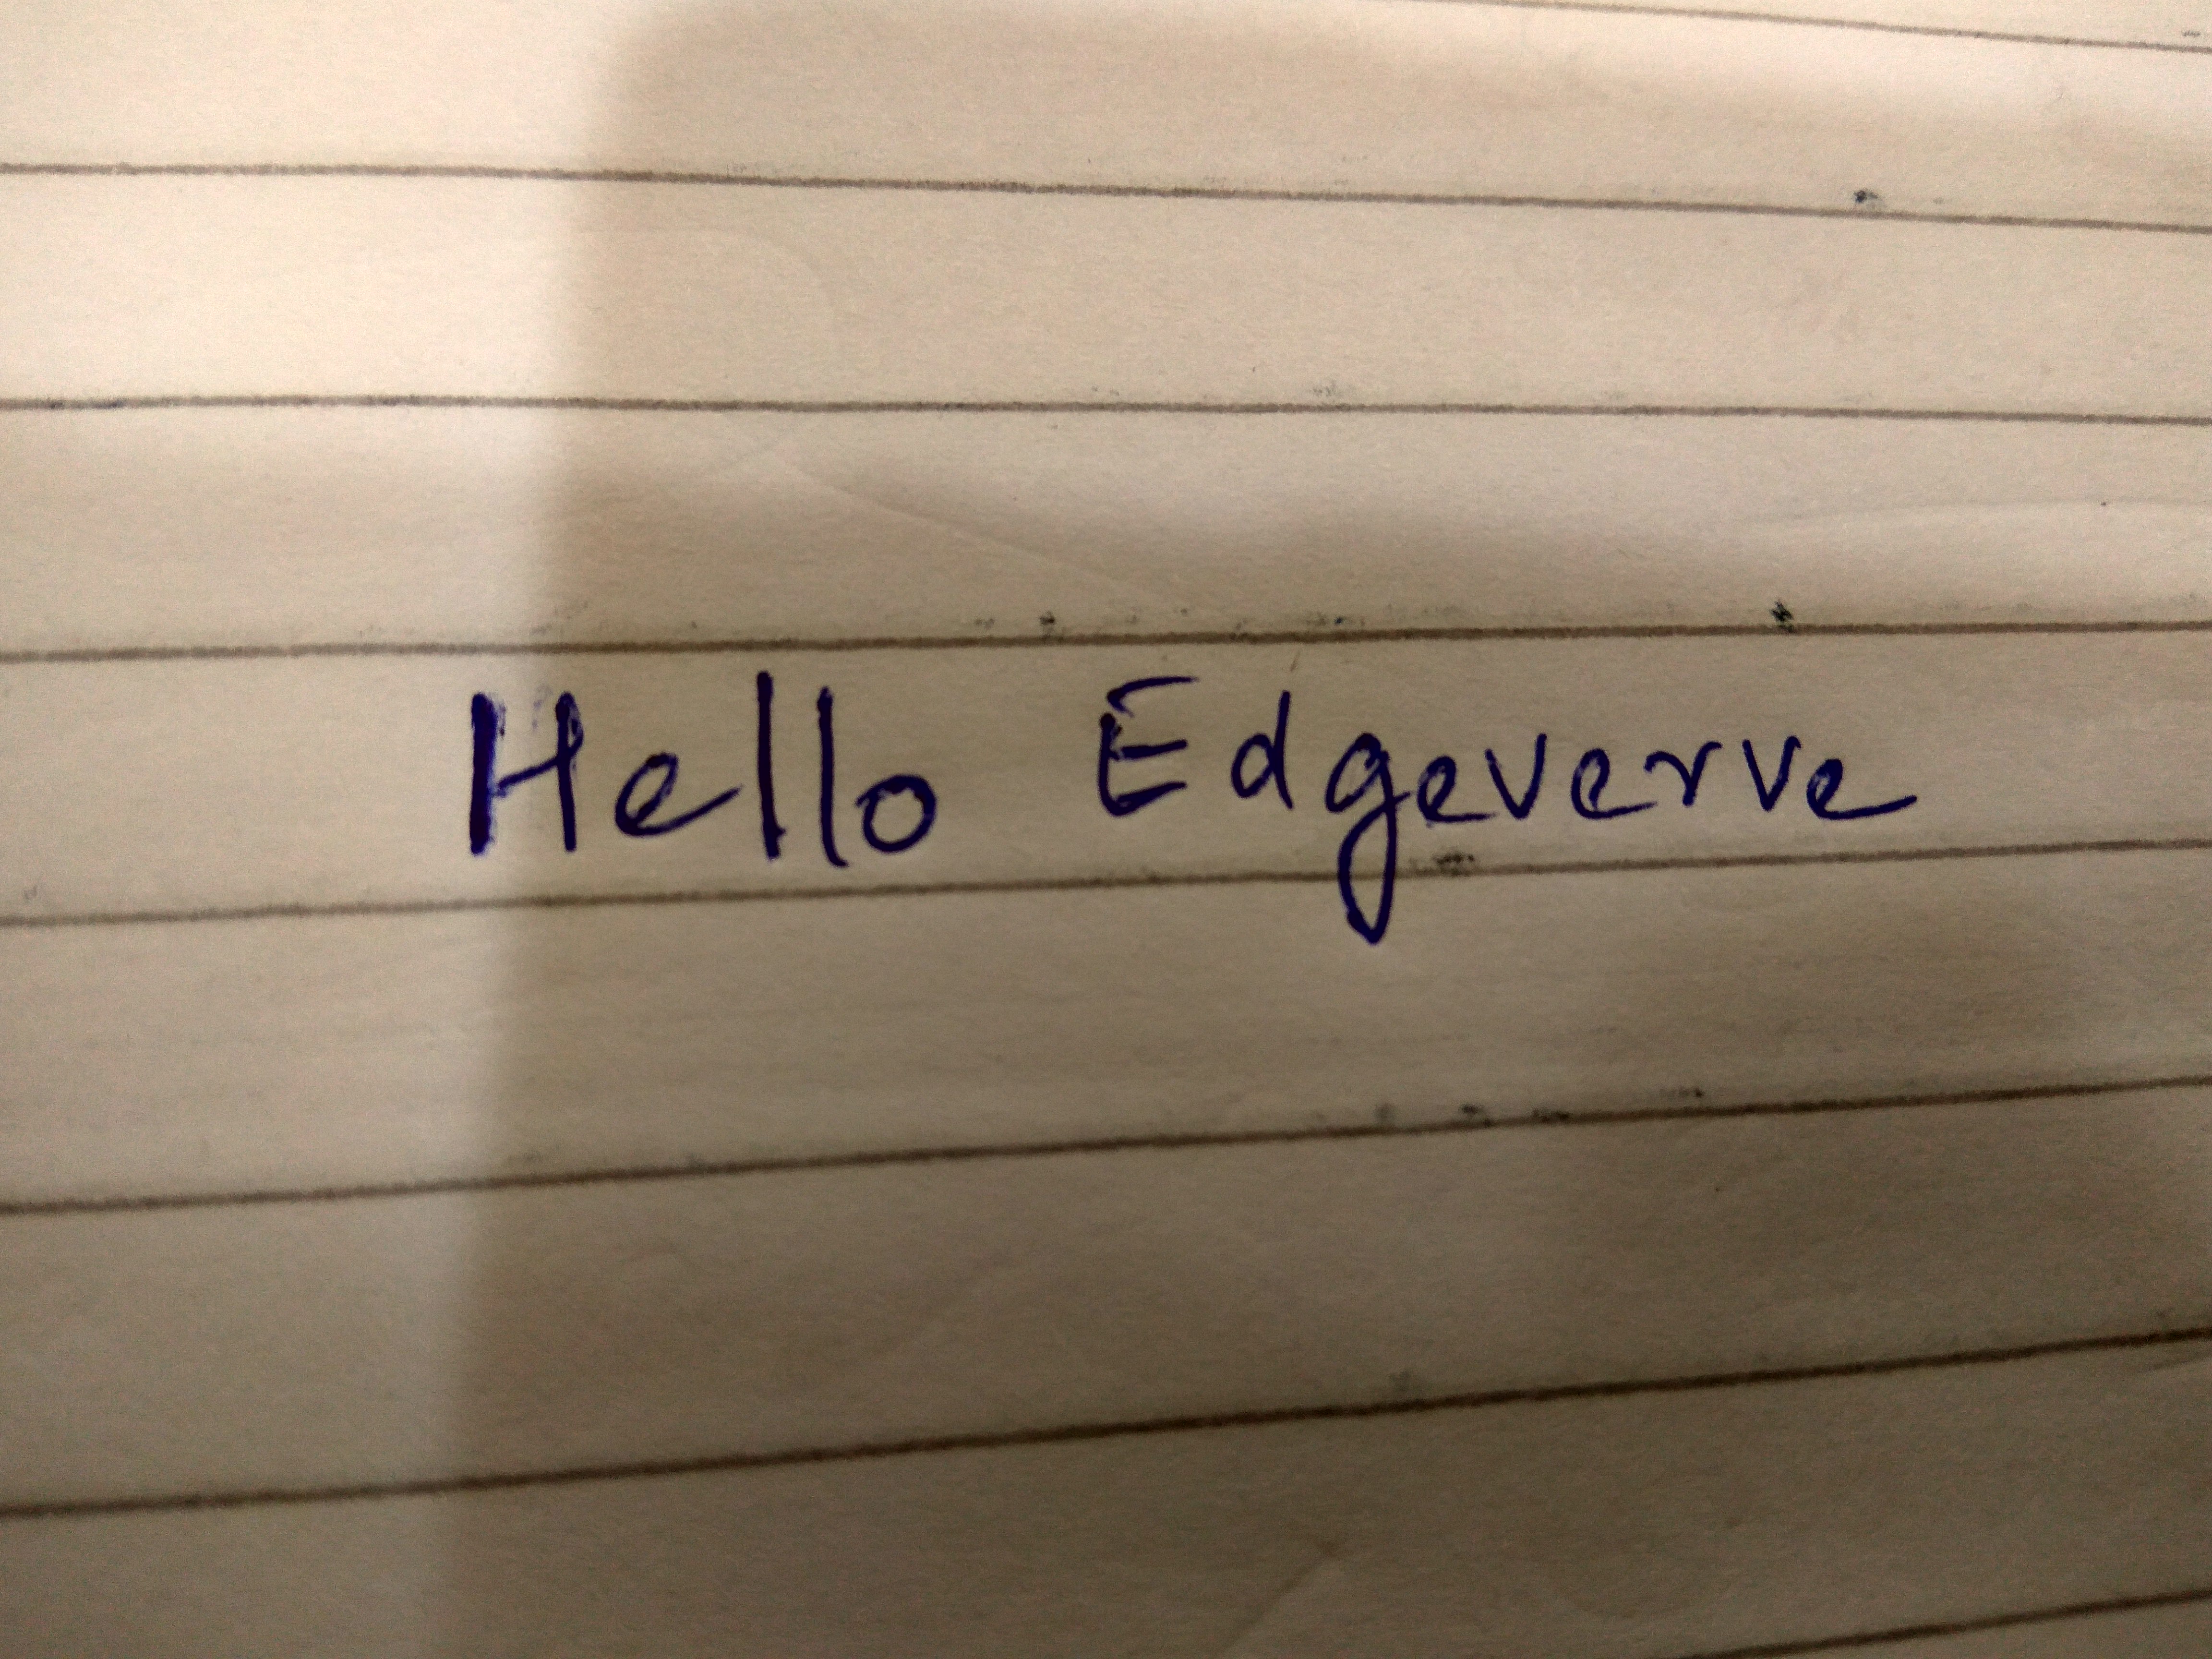 Hello Edgeverve